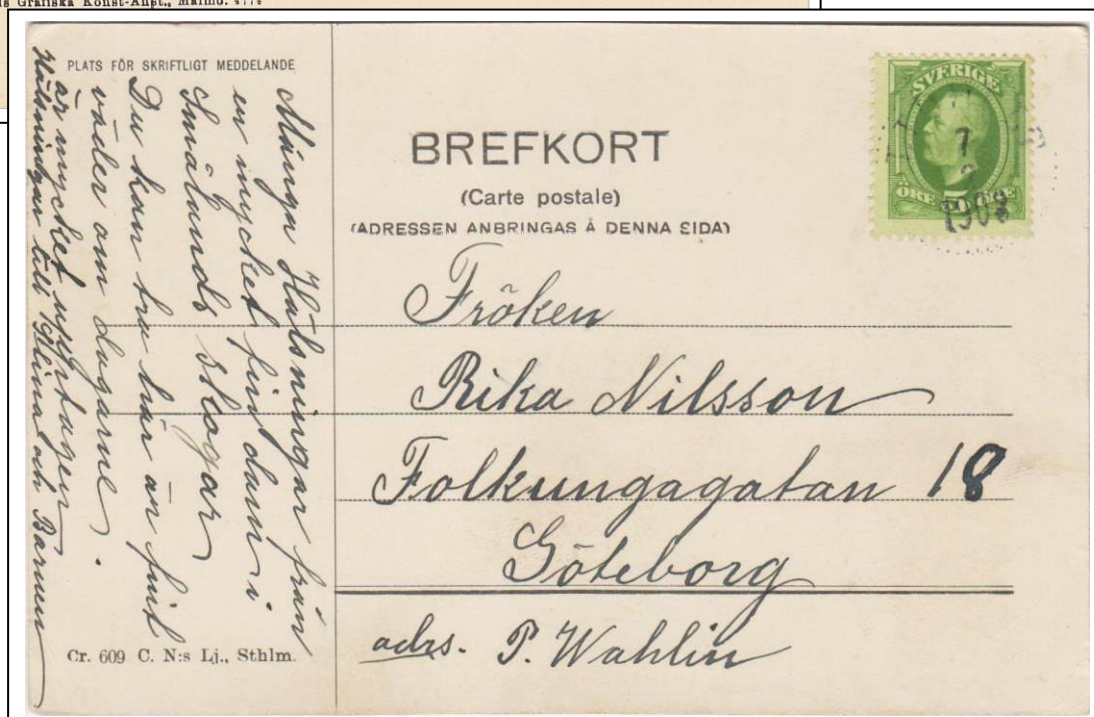 Grafiska Konst-Anst., Malmö. 4774
PLATS FÖR SKRIFTLIGT MEDDELANDE
Många Hälsningar från
en mycket fin dam i
Smålands skogar
Du kan tru här är fint
väder om dagarne.
är mycket upptagen
Hälsningar till och Barnen
Cr. 609 C. N:s Lj., Sthlm.
BREFKORT
(Carte postale)
(ADRESSEN ANBRINGAS Å DENNA SIDA)
SVERIGE
ÖRE 5 ÖRE
7
1908
Fröken
Rika Nilsson
Folkungagatan 18
Göteborg
adrs. P. Wahlin